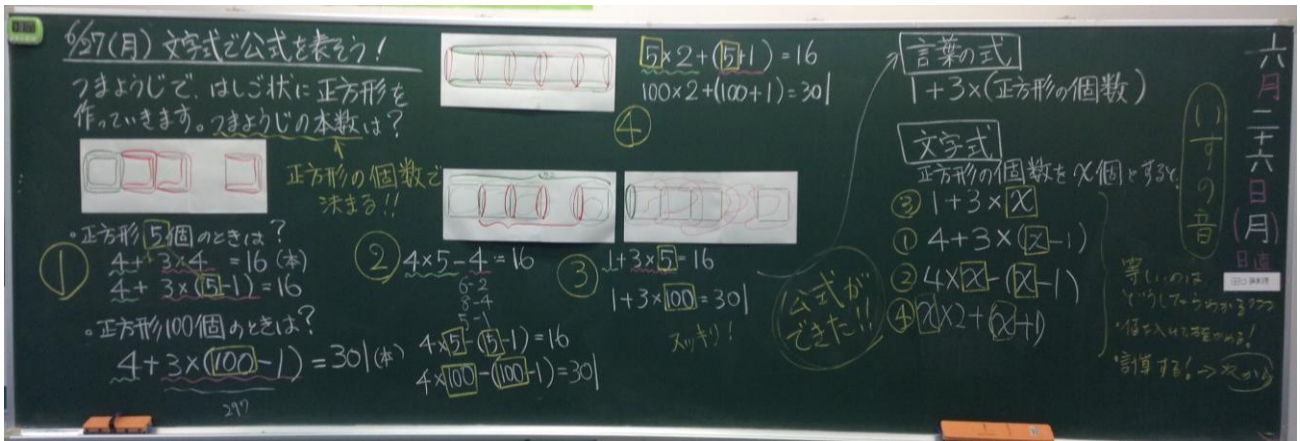 6/27(月) 文字式で公式を表そう!
つまようじで、はしご状に正方形を
作っていきます。つまようじの本数は?
正方形の個数で
決まる!!
・正方形5個のときは?
①
4+3×4=16(本)
4+3×(5-1)=16
・正方形100個のときは?
4+3×(100-1)=301(本)
297
②
4×5-4=16
6-2
8-4
5-1
4×5-(5-1)=16
4×100-(100-1)=301
5×2+(5+1)=16
100×2+(100+1)=301
④
③
1+3×5=16
1+3×100=301
スッキリ!
公式が
できた!!
言葉の式
1+3×(正方形の個数)
文字式
正方形の個数をx個とすると、
③ 1+3×x
① 4+3×(x-1)
② 4×x-(x-1)
④ x×2+(x+1)
等しいのは
どうしたらわかる???
・計算する!→次から
いすの音
六月二十六日(月)
日直